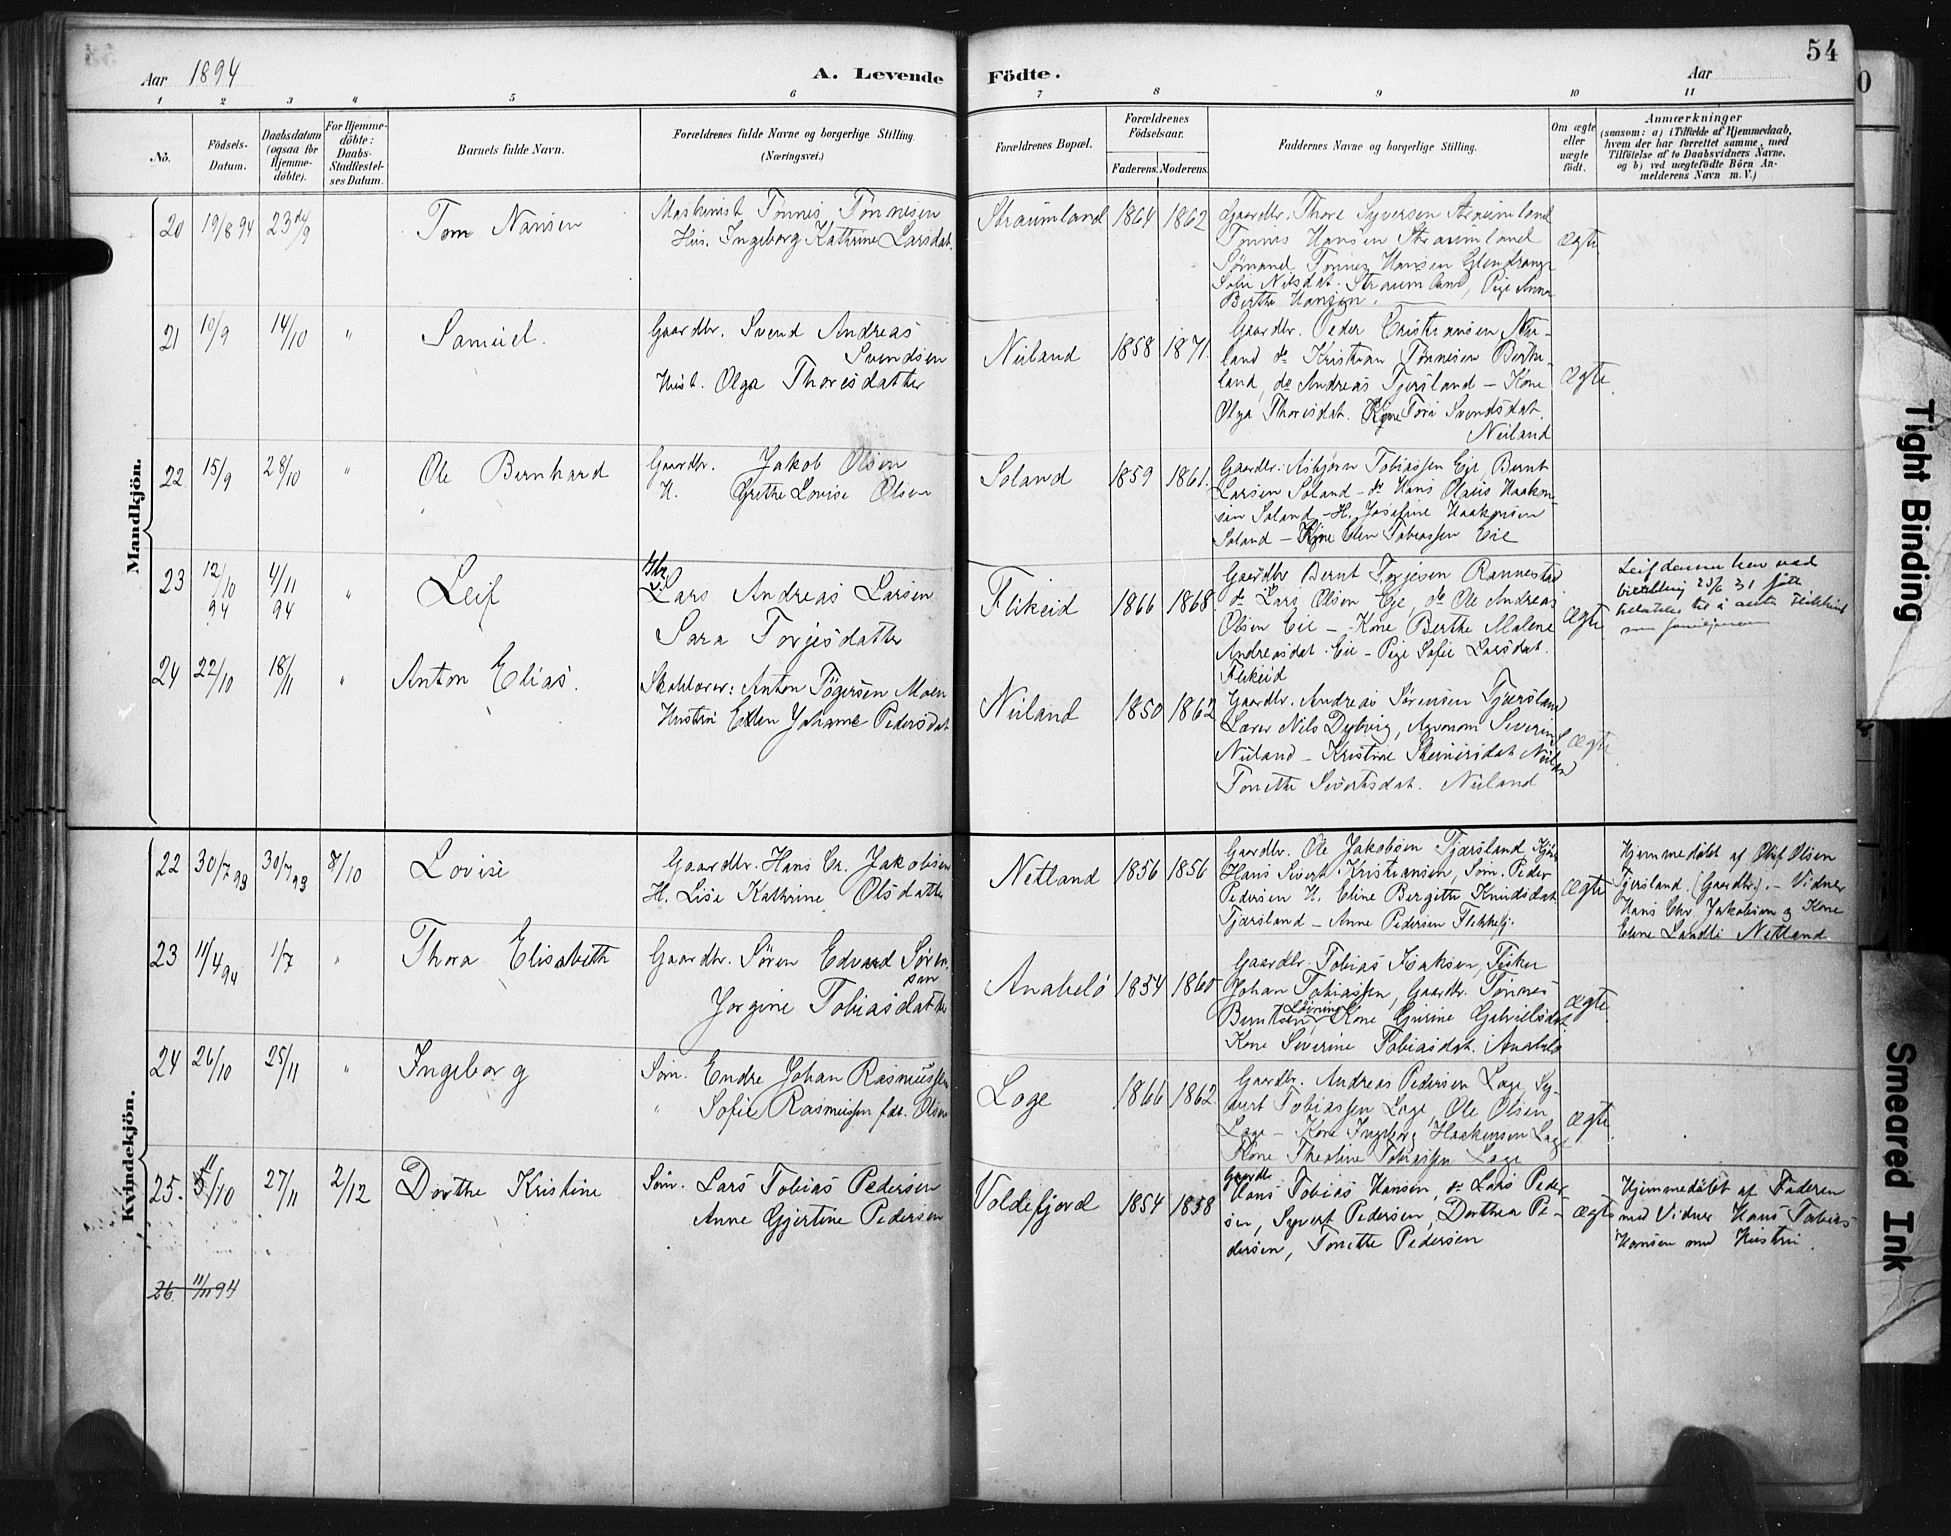 54
Aar 1894
A. Levende Födte.
Aar
1 2 3 4 5 6 7 8 9 10 11
No.
Födsels-Datum.
Daabsdatum (ogsaa for Hjemme-döbte).
For Hjemme-döbte: Daabs-Stadfæstel-ses Datum.
Barnets fulde Navn.
Forældrenes fulde Navne og borgerlige Stilling.
(Næringsvei.)
Forældrenes Bopæl.
Forældrenes Födselsaar.
Faderens. Moderens.
Faddernes Navne og borgerlige Stilling.
Om ægte eller uægte födt.
Anmærkninger
(saasom: a) i Tilfælde af Hjemmedaab,
hvem der har forrettet samme, med
Tilföielse af to Daabsvidners Navne,
og b) ved uægtefödte Börn An-
melderens Navn m. V.)
Mandkjön.
20 19/8 94 23de/9 Tom Nansen
Maskinist Tønnes Tønnesen
Hus. Ingeborg Kathrine Larsdat.
Straumland 1864 1862
Gaardbr. Thore Syversen Straumland
Tønnes Hansen Straumland
Sømand Tønnes Hansen
Sofie Nilsdat. Straumland, Pige Anne
Berthe Hansen.
ægte
21 10/9 14/10 " Samuel.
Gaardbr. Svend Andreas
Svendsen
Hust. Olga Thoresdatter
Nuland 1858 1871.
Gaardbr. Peder Cristiansen Nu-
land do Kristian Tønnesen Berthe-
land, do Andreas Tjersland - Kone
Olga Thoresdat. Pige Tora Svendsdat.
Nuland
ægte
22 15/9 28/10 " Ole Bernhard
Gaardbr. Jakob Olsen
H. Grethe Lovise Olsen
Soland 1859 1861.
Gaardbr. Asbjørn Tobiassen Eje, Bernt
Larsen Soland - do Hans Olaus Haakon-
sen Soland - H. Josefine Haakonsen
Soland - Pige Elen Tobiassen Eie
23 12/10 94 4/11 94 " Leif
Lars Andreas Larsen
Sara Torjesdatter
Flikeid 1866 1868
Gaardbr Bernt Torjesen Rannestad
do Lars Olsen Eje, do Ole Andreas
Olsen Eie - Kone Berthe Malene
Andreasdat. Eie - Pige Sofie Larsdat.
Flikeid
ægte
24 22/10 18/11 " Anton Elias.
Skolelærer: Anton Tøgersen Moen
Hustru Ellen Johanne Pedersdat
Nuland 1850 1862
Gaardbr. Andreas Sørensen Tjersland
Lærer Nils Dybvig, Agronom Severin
Nuland - Kristine
Tonette Sivertsdat. Nuland
ægte
Kvindekjön.
22 30/7 93 30/7 93 8/10 Lovise
Gaardbr. Hans Cr. Jakobsen
H. Lise Kathrine Olsdatter
Netland 1856 1856
Gaardbr. Ole Jakobsen Tjærsland
Hans Sivert Kristiansen, Søm. Peder
Pedersen H. Eline Bergitte Knudsdat
Tjærsland - Anne Pedersen
ægte
Hjemmedøbt af Oluf Olsen
Tjersland. (Gaardbr.). - Vidner
Hans Chr. Jakobsen og Kone
Netland
23 11/4 94 1/7 " Thora Elisabeth
Gaardbr. Søren Edvard Søren-
sen
Jorgine Tobiasdatter
Anabelø 1854 1860
Gaardbr. Tobias Isaksen, Fisker
Johan Tobiassen, Gaardbr. Tønnes
Berntsen, Kone Gurine Gabrielsdat.
Kone Severine Tobiasdat. Anabelø
ægte
24 26/10 25/11 " Ingeborg
Søm. Endre Johan Rasmussen
" Sofie Rasmussen fdt. Olsen
Loge 1866 1862
Gaardbr. Andreas Pedersen Loge Sy-
vert Tobiassen Loge, Ole Olsen
Loge - Kone Ingeborg Haakensen Loge
Kone Theoline Tobiassen Loge
ægte
25. 11/10 27/11 2/12 Dorthe Kristine
Søm. Lars Tobias Pedersen
Anne Gjertine Pedersen
Voldefjord 1854 1858
Gaardbr
Hans Tobias Hansen, do Lars Peder-
sen, Syvert Pedersen, Dorthea Pe-
dersen, Tonette Pedersen
ægte
Hjemmedøbt af Faderen
med Vidner Hans Tobias
Hansen med Hustru.
26 11/11 94
Tight Binding
Smeared Ink